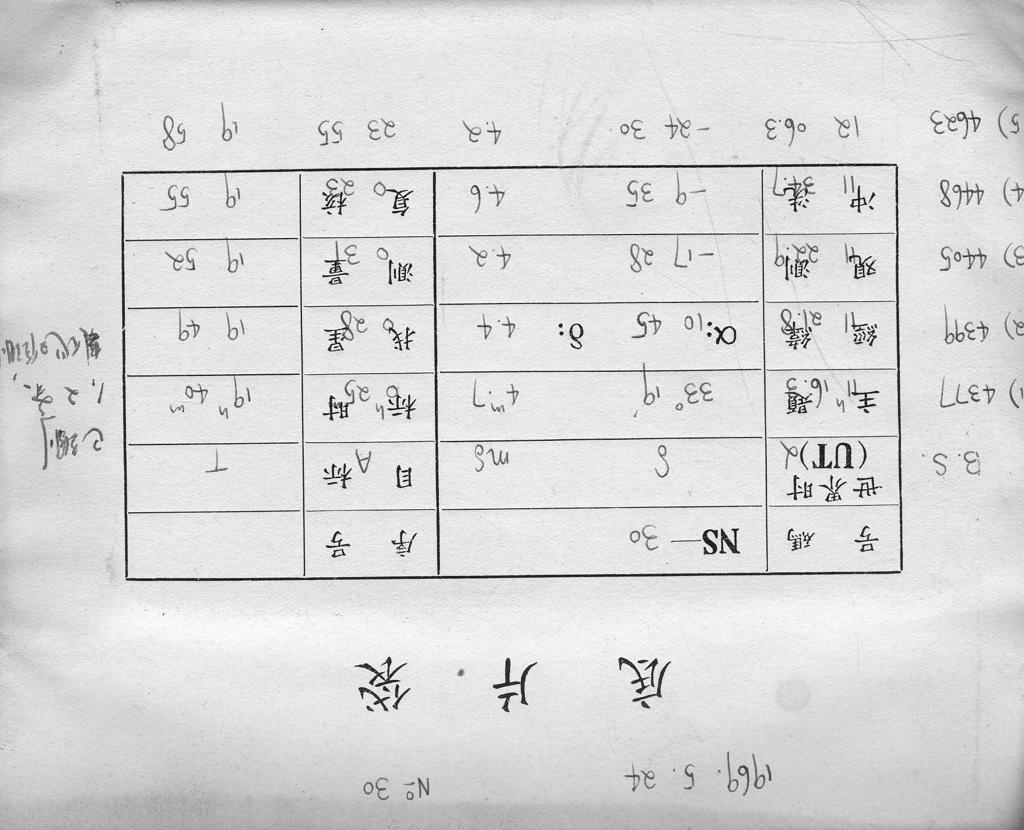 1969. 5. 24 Nº 30
底 片 袋
号 碼 NS— 30 序 号
世界时
B.S. (UT) α δ mS 目 标 A T
1) 4377 主 題 11h 16.3 33° 19′ 4m.7 标 时 0h 25 19h 40m
2) 4399 經 緯 11 21.8 α: 10 45 δ: 4.4 找 星 0 28 19 49
3) 4405 观 测 11 22.9 -17 28 4.2 测 量 0 31 19 52
4) 4468 冲 洗 11 34.7 -9 35 4.6 复 核 0 23 19 55
5) 4623 12 06.3 -24 30 4.2 23 55 19 58
1, 2